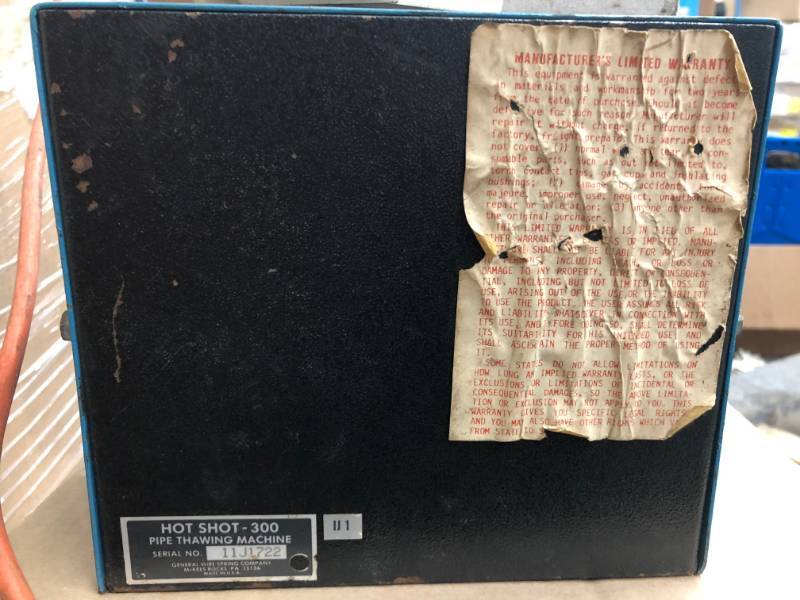 MANUFACTURER'S LIMITED WARRANTY
This equipment is warranted against defect
in materials and workmanship for two years
the date of purchase. Should it become
for such reason, Manufacturer will
repair it without charge if returned to the
factory, freight prepaid. This warranty does
not cover: normal
sumable parts, such as but
torch contact tips, gas cup and insulating
bushings; damage by accident,
majeure, improper use, neglect, unauthorized
repair or alteration; 3) anyone other than
the original purchaser.
THIS LIMITED IS IN LIEU OF ALL
OTHER OR IMPLIED. MANU-
SHALL BE LIABLE FOR ANY INJURY
INCLUDING OR LOSS OR
DAMAGE TO ANY PROPERTY, CONSEQUEN-
TIAL, INCLUDING BUT NOT LIMITED LOSS OF
USE, ARISING OUT OF THE USE OR THE INABILITY
TO USE THE PRODUCT. THE USER ASSUMES ALL RISK
AND LIABILITY WHATSOEVER IN CONNECTION WITH
ITS USE, AND BEFORE DOING SO, SHALL DETERMINE
ITS SUITABILITY FOR HIS INTENDED USE AND
SHALL ASCERTAIN THE PROPER METHOD OF USING
IT.
SOME STATES DO NOT ALLOW LIMITATIONS ON
HOW LONG AN IMPLIED WARRANTY LASTS, OR THE
EXCLUSIONS OR LIMITATIONS OF INCIDENTAL OR
CONSEQUENTIAL DAMAGES, SO THE ABOVE LIMITA-
TION OR EXCLUSION MAY NOT APPLY TO YOU. THIS
WARRANTY GIVES YOU SPECIFIC LEGAL RIGHTS
AND YOU MAY ALSO HAVE OTHER RIGHTS WHICH
FROM STATE TO
HOT SHOT-300
PIPE THAWING MACHINE
SERIAL NO. 11J1722
GENERAL WIRE SPRING COMPANY
McKEES ROCKS, PA 15136
MADE IN U.S.A.
IJ 1